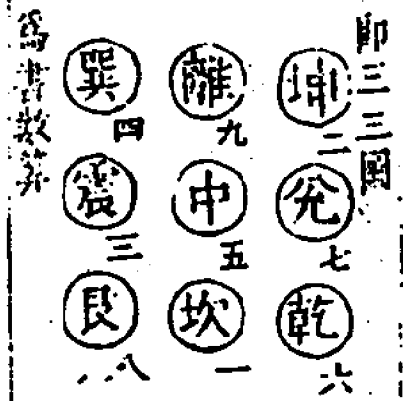 即三三圖
坤二 兌七 乾六
離九 中五 坎一
巽四 震三 艮八
為書數算